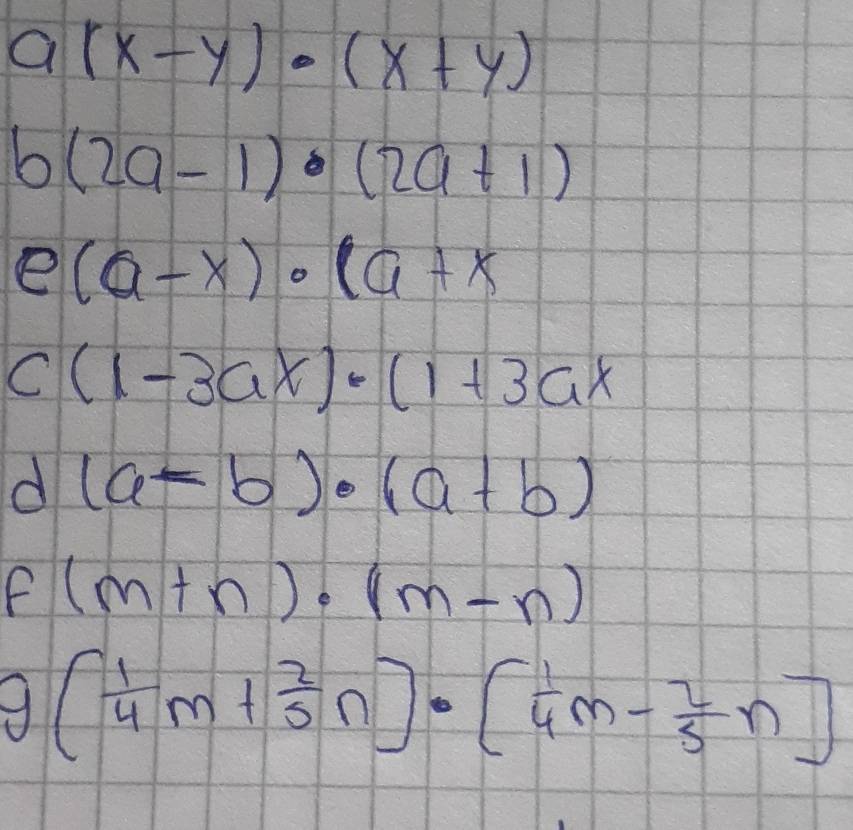 a(x-y)·(x+y)
b(2a-1)·(2a+1)
e(a-x)·(a+x
c(1-3ax)·(1+3ax
d(a-b)·(a+b)
f(m+n)·(m-n)
g[1/4m+2/5n]·[1/4m-2/5n]